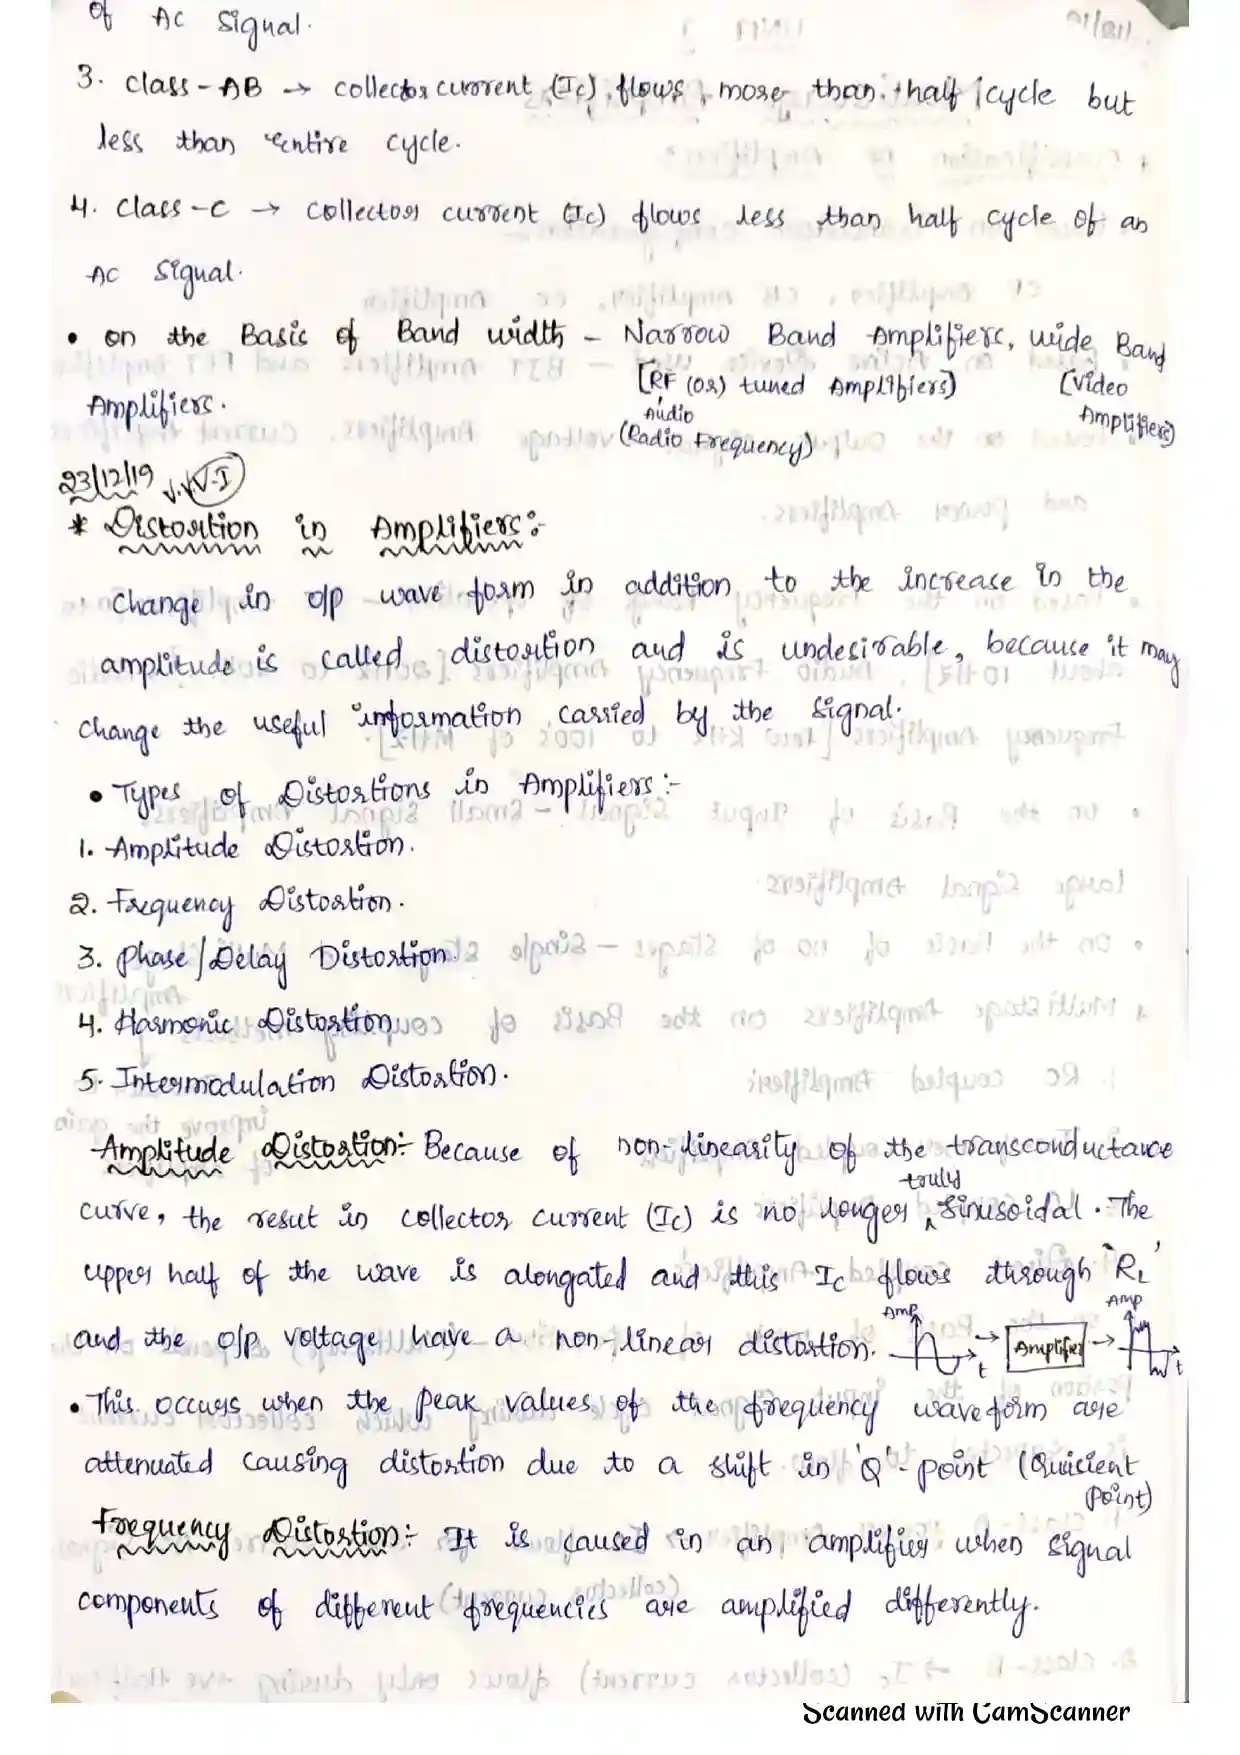 of AC Signal.
3. class-AB → collector current (Ic) flows more than half cycle but
less than entire cycle.
4. class-C → collector current (Ic) flows less than half cycle of an
AC Signal.
• on the Basis of Band width – Narrow Band Amplifiers, wide Band
[RF (or) tuned Amplifiers) [Video
Amplifiers. Audio Amplifiers)
(Radio Frequency)
23/12/19 V.V.V.I
* Distortion in Amplifiers:-
Change in o/p wave form in addition to the increase in the
amplitude is called distortion and is undesirable, because it may
change the useful information carried by the signal.
• Types of Distortions in Amplifiers:-
1. Amplitude Distortion.
2. Frequency Distortion.
3. Phase/Delay Distortion.
4. Harmonic Distortion
5. Intermodulation Distortion.
Amplitude Distortion:- Because of non-linearity of the transconductance
curve, the result in collector current (Ic) is no longer truly sinusoidal. The
upper half of the wave is alongated and this Ic flows through 'RL'
and the o/p voltage have a non-linear distortion. Amp t → Amplifier → Amp t
• This occurs when the peak values of the frequency waveform are
attenuated causing distortion due to a shift in 'Q'-point (Quisient
Point)
Frequency Distortion:- It is caused in an amplifier when signal
components of different frequencies are amplified differently.
Scanned with CamScanner